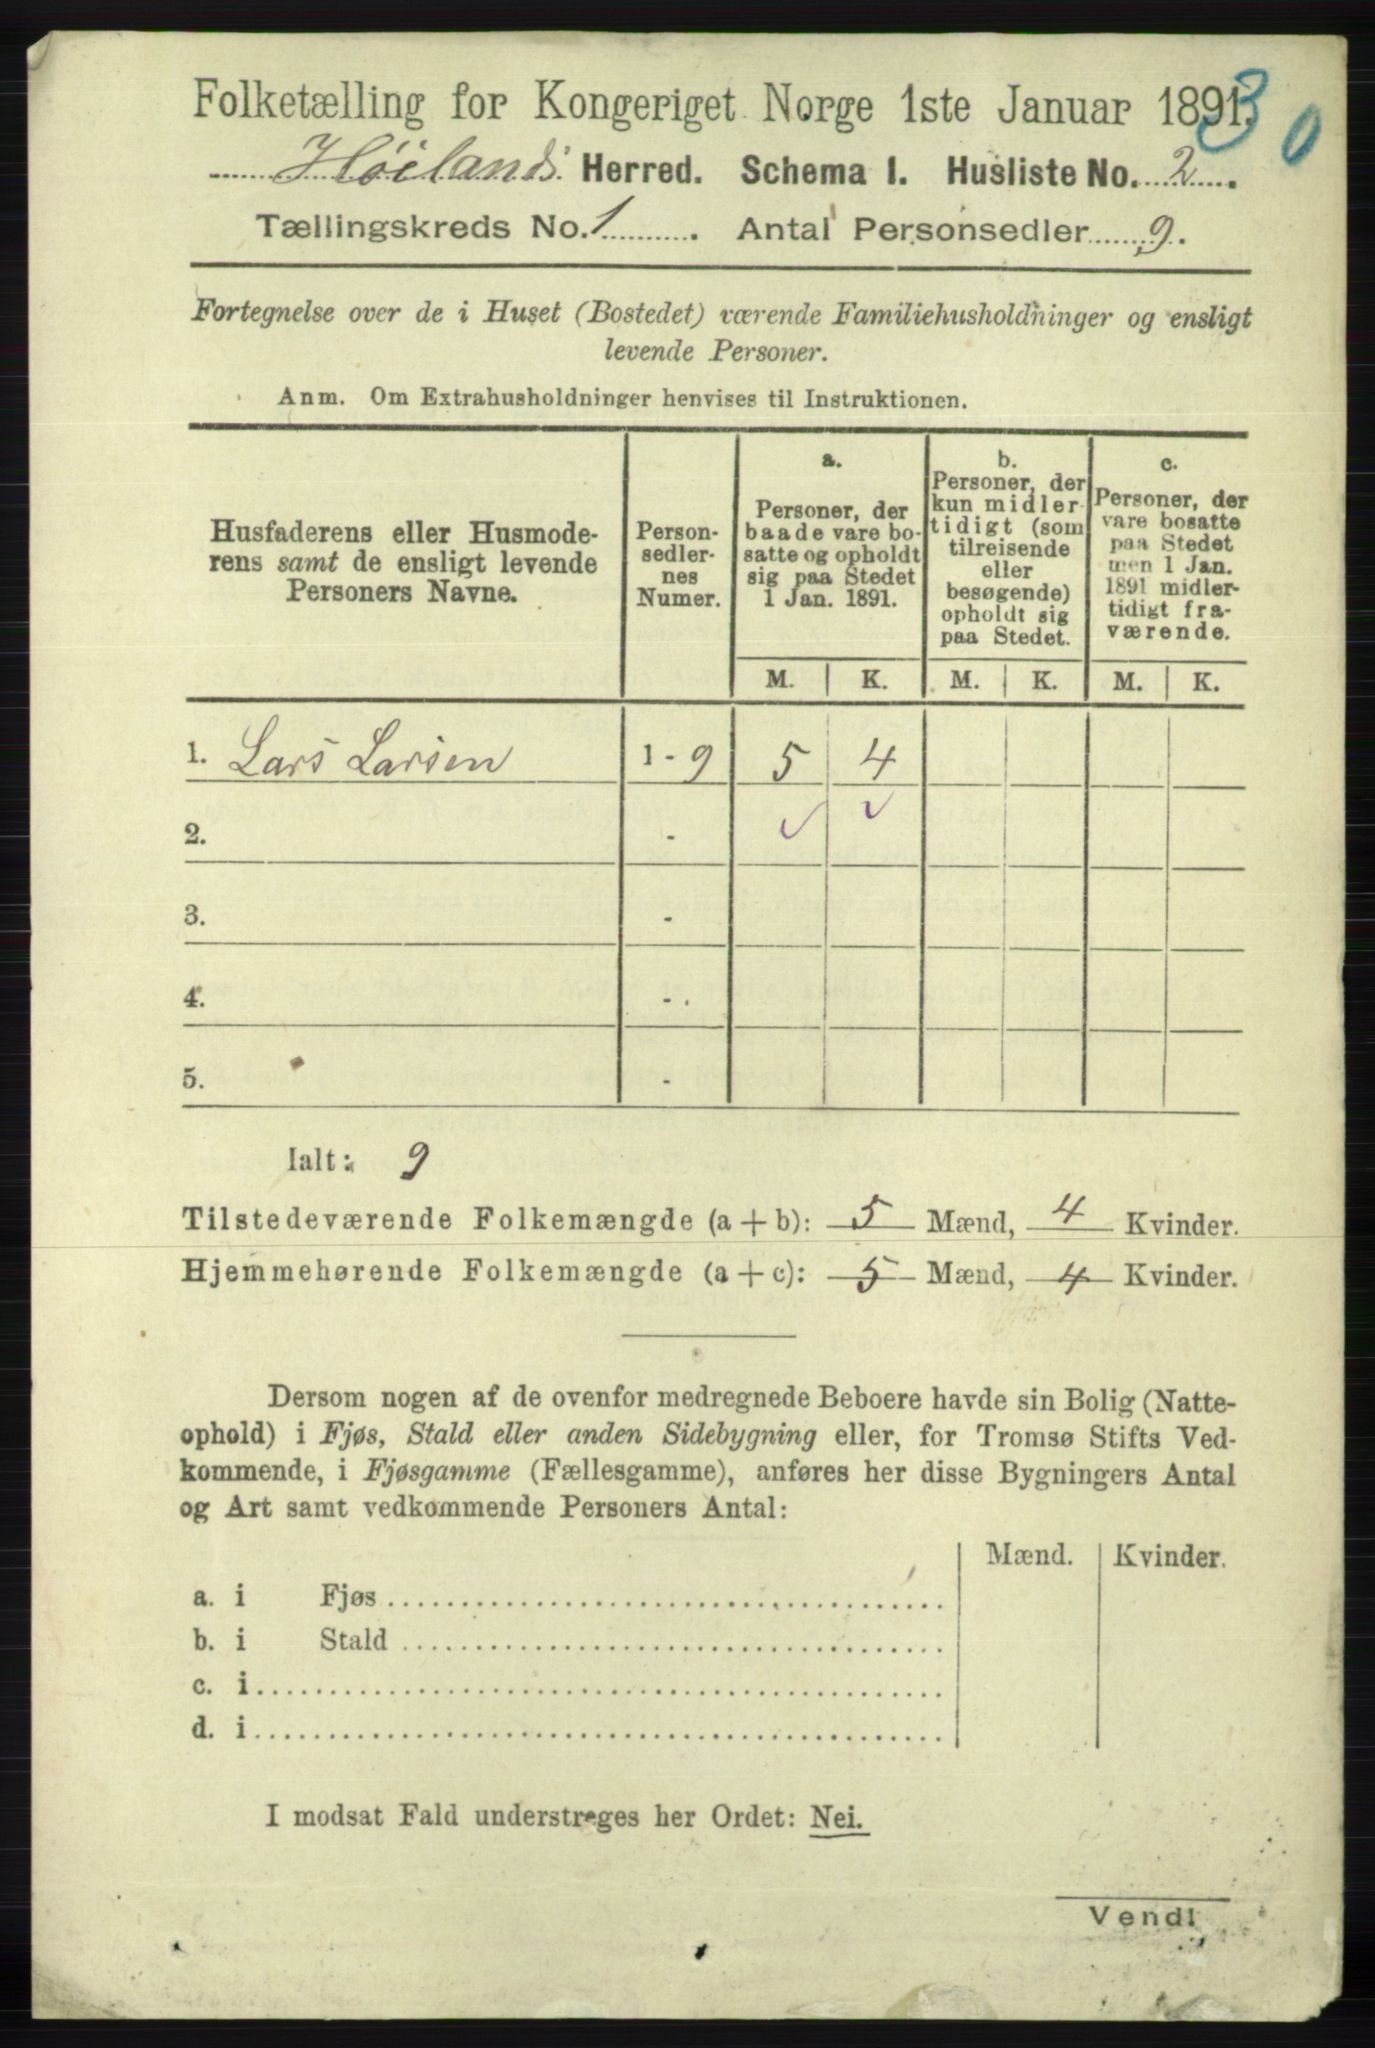 Folketælling for Kongeriget Norge 1ste Januar 1891.
30
Höilands Herred. Schema 1. Husliste No. 2.
Tællingskreds No. 1. Antal Personsedler 9.
Fortegnelse over de i Huset (Bostedet) værende Familiehusholdninger og ensligt
levende Personer.
Anm. Om Extrahusholdninger henvises til Instruktionen.
Husfaderens eller Husmode-
rens samt de ensligt levende
Personers Navne.
Person-
sedler-
nes
Numer.
a.
Personer, der
baade vare bo-
satte og opholdt
sig paa Stedet
1 Jan. 1891.
b.
Personer, der
kun midler-
tidigt (som
tilreisende
eller
besøgende)
opholdt sig
paa Stedet.
c.
Personer, der
vare bosatte
paa Stedet
men 1 Jan.
1891 midler-
tidigt fra-
værende.
M. K. M. K. M. K.
1. Lars Larsen 1 - 9 5 4
2. -
3. -
4. -
5. -
Ialt: 9
Tilstedeværende Folkemængde (a + b): 5 Mænd, 4 Kvinder.
Hjemmehørende Folkemængde (a + c): 5 Mænd, 4 Kvinder.
Dersom nogen af de ovenfor medregnede Beboere havde sin Bolig (Natte-
ophold) i Fjøs, Stald eller anden Sidebygning eller, for Tromsø Stifts Ved-
kommende, i Fjøsgamme (Fællesgamme), anføres her disse Bygningers Antal
og Art samt vedkommende Personers Antal:
Mænd. Kvinder.
a. i Fjøs
b. i Stald
c. i
d. i
I modsat Fald understreges her Ordet: Nei.
Vend!